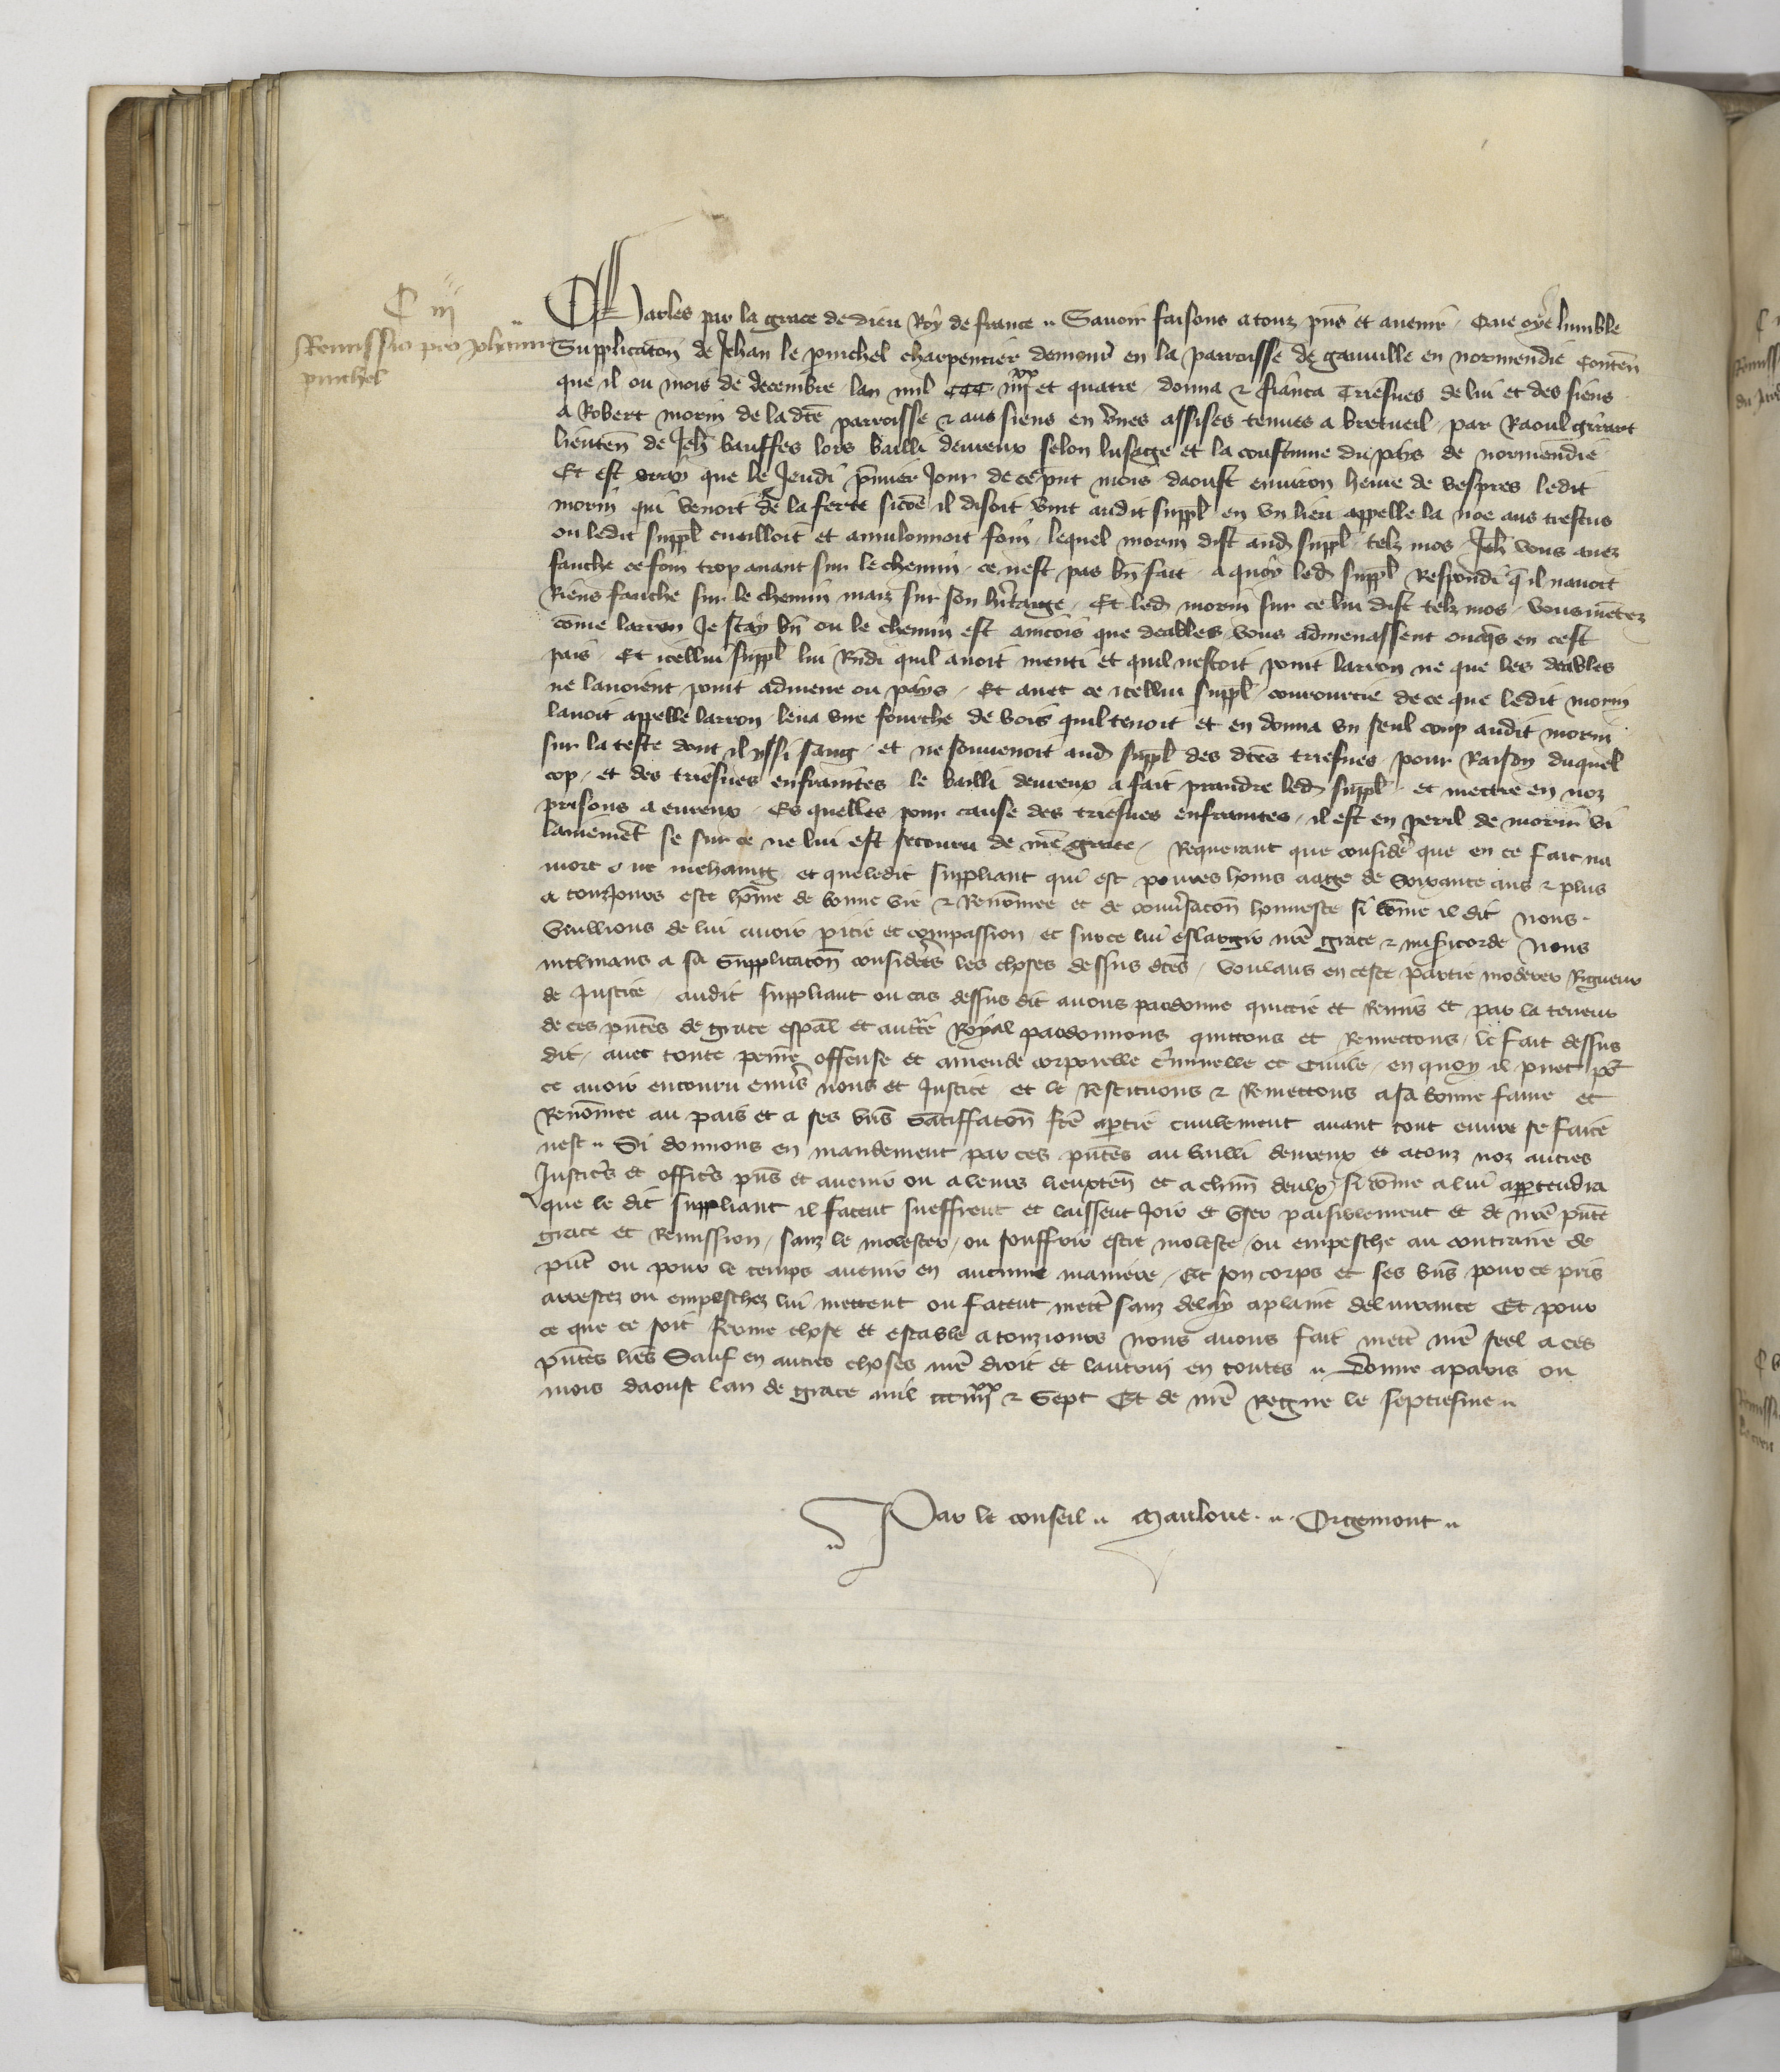 C iii
Remissio pro Johanne
pinchel
Charles par la grace de dieu Roy de france .. Savoir faisons a touz pn̄s et avenir / Que oye lumble
Supplicacōn de Jehan le pinchel charpentier demour̄ en la parroisse de gauville en normendie Conten̄
que il ou mois de decembre lan mil CCC iiijxx et quatre donna & fianca Triesves de lui et des siens
a Robert morin de la dcē parroisse & aus siens en b̄nes assises tenues a bretueil par Raoul girart
lieuten̄ de Jeh̄ bauffes lors bailli devreux selon lusage et la coustume du pays de normendie
Et est vray que le Jeudi p̄mier Jour de ce pn̄t mois daoust environ heure de vespres ledit
morin qui venoit de la ferte sicōe il disoit vint audit suppl̄ en un lieu appelle la noe aus trestus
ou ledit suppl̄ cueilloit et amulonnoit foin / lequel morin dist aud suppl̄ telz mos Jeh̄ vous avez
fauche ce foin trop avant sur le chemin / ce nest pas bn̄ fait / a quoy led suppl̄ Respondi q̄ il navoit
Riens fauche sur le chemin maiz sur son h̄itaige / Et led morin sur ce lui dist telz mos / vous mētez
cōme larron Je scay bn̄ ou le chemin est aincois que deables vous admenassent onq̄s en cest
pais / Et icellui suppl̄ lui Rn̄di quil avoit menti et quil nestoit point larron ne que les deables
ne lavoient point admene ou pays / Et avec ce icellui suppl̄ courourcie de ce que ledit morin
lavoit appelle larron leva une fourche de bois quil tenoit et en donna un seul coup audit morin
sur la teste dont il yssi sang / et ne souvenoit aud suppl̄ des dcēs triesves / pour Raison duquel
cop / et des triesves enfraintes le bailli devreux a fait prandre led suppl̄ et mettre en noz
prisons a evreux / Es quelles pour cause des triesves enfraintes / il est en peril de morir vi
lainemēt se sur ce ne lui est secouru de nr̄e grace / Requerant que consider̄ que en ce fait na
mort ne mehaing et que ledit suppliant qui est povres homs aagie de Soixante ans & plus
a touzjours este hōme de bonne vie & Renōmee et de conv̄sacōn honneste si cōme il dit Nous
vueillions de lui avoir pitie et compassion / et sur ce lui eslargir nr̄e grace & mis̄icorde Nous
inclinans a sa Supplicacōn consider̄s les choses dessus dcēs / Voulans en ceste partie moderer Rigueur
de Justice / audit suppliant ou cas dessus dit avons pardonne quictie et Remis et par la teneur
de ces pn̄tes de grace esp̄al et auct̄e Royal pardonnons quittons et Remettons le fait dessus
dit / avec toute peine offense et amende corporelle c̄iminelle et Civile / en quoy il puet po͛
ce avoir encouru env̄s nous et Justice / et le Restituons & Remettons a sa bonne fame et
Renōmee au pais et a ses bn̄s Satiffacōn fcē a partie civilement avant tout euvre se faite
nest .. Si donnons en mandement par ces pn̄tes au bailli devreux et a touz noz autres
Justic̄s et offic̄s pn̄s et avenir ou a leurs lieuxten̄ et a chūn deulx si cōme a lui appartendra
que le dit suppliant il facent sueffrent et laissent Joir et user paisiblement et de nr̄e pn̄te
grace et Remission / sanz le molester / ou souffrir estre moleste / ou empesche au contraire de
pn̄t ou pour le temps avenir en aucune maniere / Et son corps et ses bn̄s pour ce pris
arrestez ou empeschez lui mettent ou facent mett̄ sanz delay a plaine delivrance Et pour
ce que ce soit ferme chose et estable a touzjours nous avons fait mett̄ nr̄e seel a ces
pn̄tes lr̄es Sauf en autres choses nr̄e droit et lautrui en toutes .. Donne a paris ou
mois daoust lan de grace mil ccciiijxx & Sept Et de nr̄e Regne le septiesme ..
Par le conseil .. Mauloue .. Orgemont ..